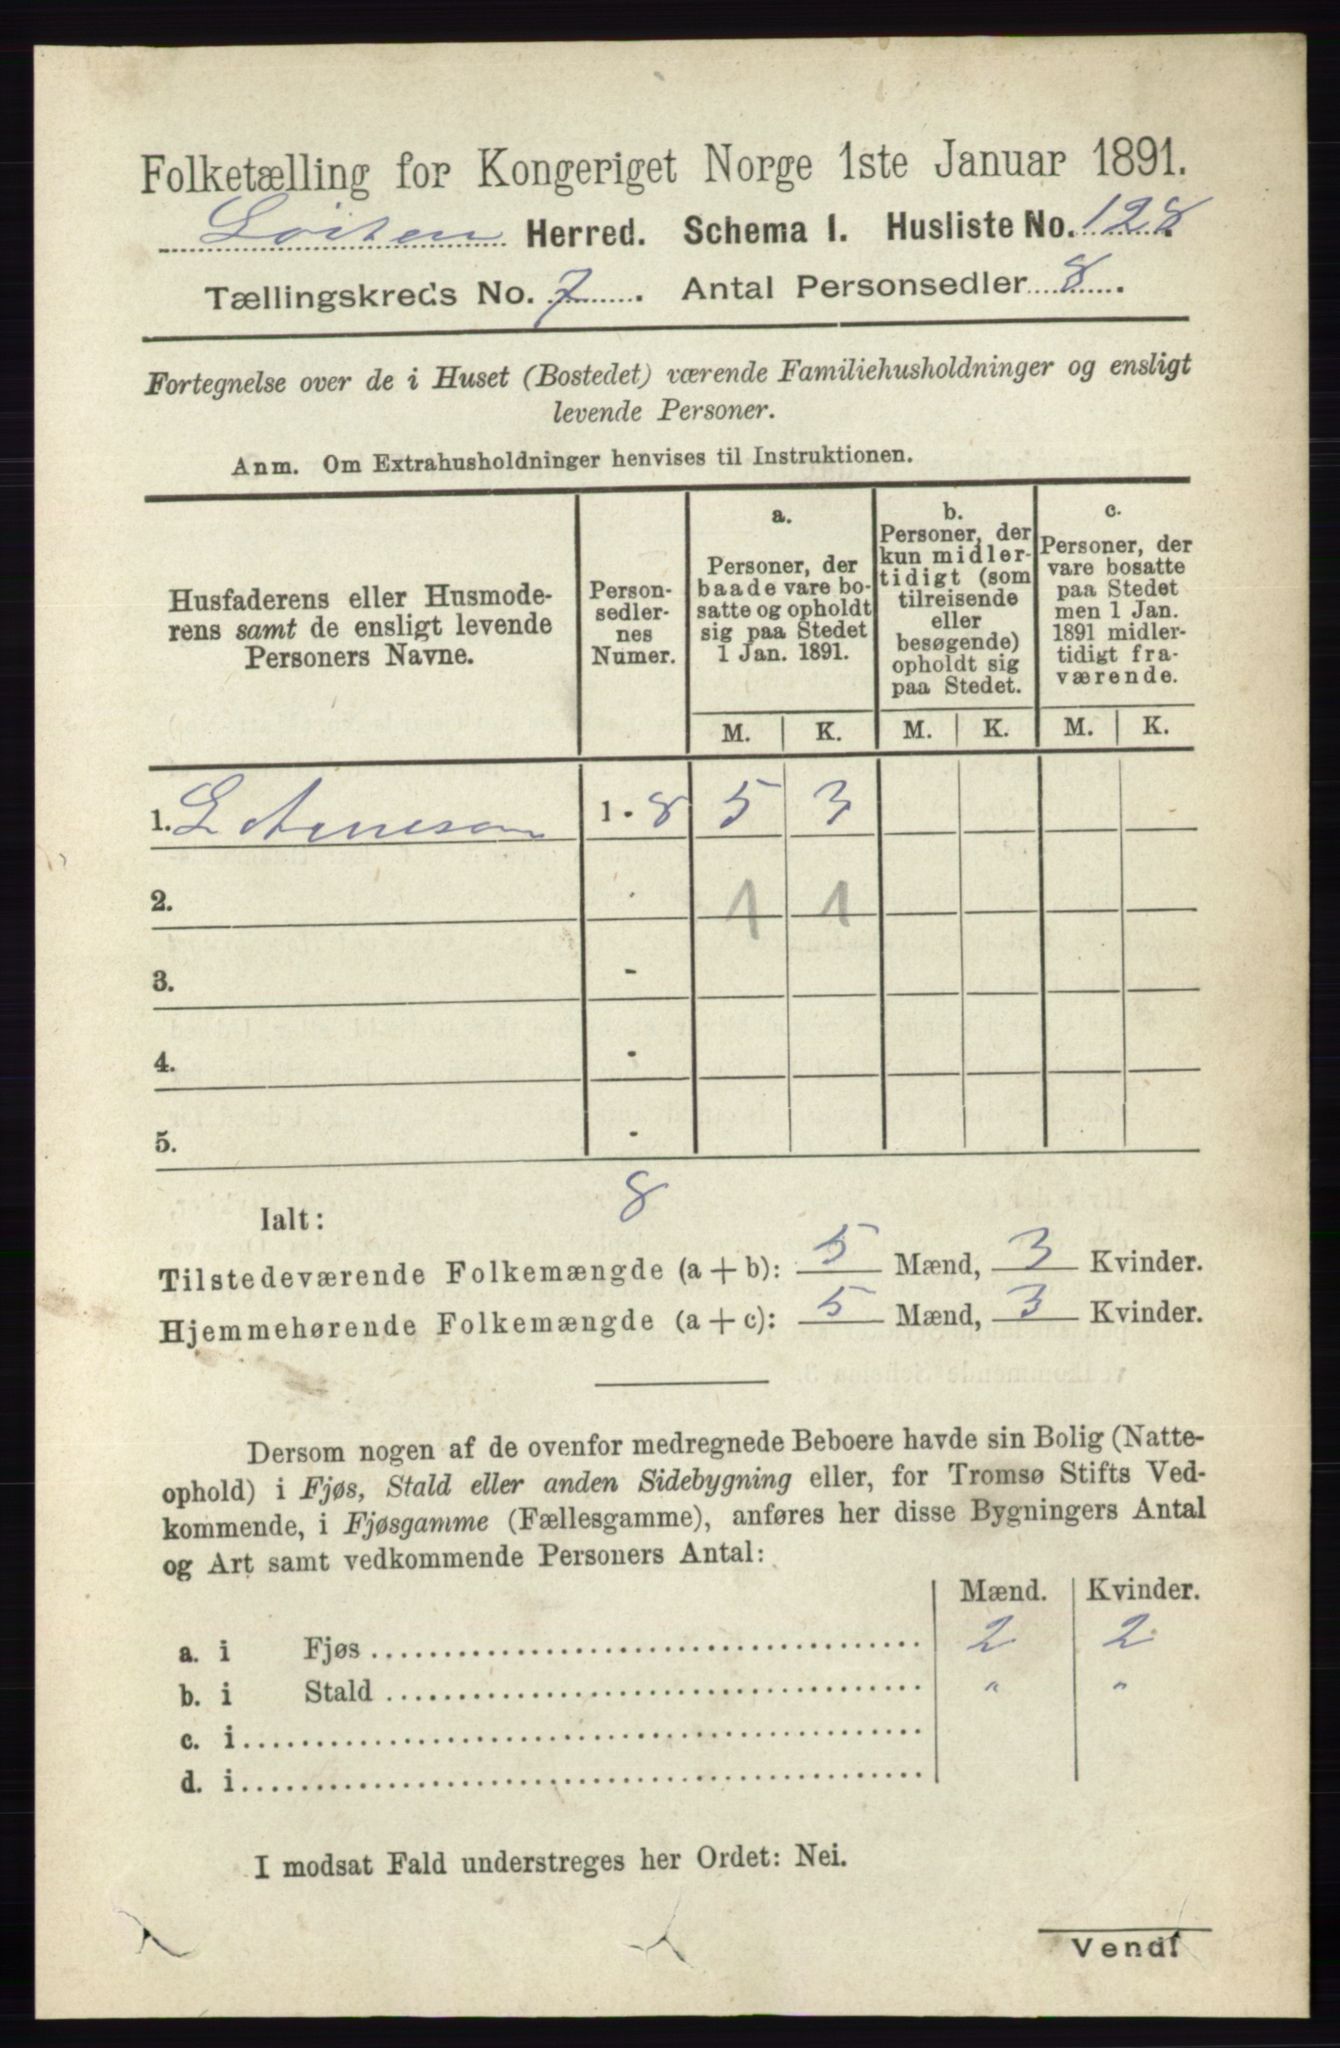 Folketælling for Kongeriget Norge 1ste Januar 1891.
Løiten Herred. Schema I. Husliste No. 128
Tællingskreds No. 7. Antal Personsedler 8.
Fortegnelse over de i Huset (Bostedet) værende Familiehusholdninger og ensligt
levende Personer.
Anm. Om Extrahusholdninger henvises til Instruktionen.
Husfaderens eller Husmode-
rens samt de ensligt levende
Personers Navne.
Person-
sedler-
nes
Numer.
a.
Personer, der
baade vare bo-
satte og opholdt
sig paa Stedet
1 Jan. 1891.
b.
Personer, der
kun midler-
tidigt (som
tilreisende
eller
besøgende)
opholdt sig
paa Stedet.
c.
Personer, der
vare bosatte
paa Stedet
men 1 Jan.
1891 midler-
tidigt fra-
værende.
M. K. M. K. M. K.
1. L 1 - 8 5 3
2. - 1 1
3. -
4. -
5. -
Ialt: 8
Tilstedeværende Folkemængde (a + b): 5 Mænd, 3 Kvinder.
Hjemmehørende Folkemængde (a + c): 5 Mænd, 3 Kvinder.
Dersom nogen af de ovenfor medregnede Beboere havde sin Bolig (Natte-
ophold) i Fjøs, Stald eller anden Sidebygning eller, for Tromsø Stifts Ved-
kommende, i Fjøsgamme (Fællesgamme), anføres her disse Bygningers Antal
og Art samt vedkommende Personers Antal:
Mænd. Kvinder.
a. i Fjøs 2 2
b. i Stald " "
c. i
d. i
I modsat Fald understreges her Ordet: Nei.
Vend!